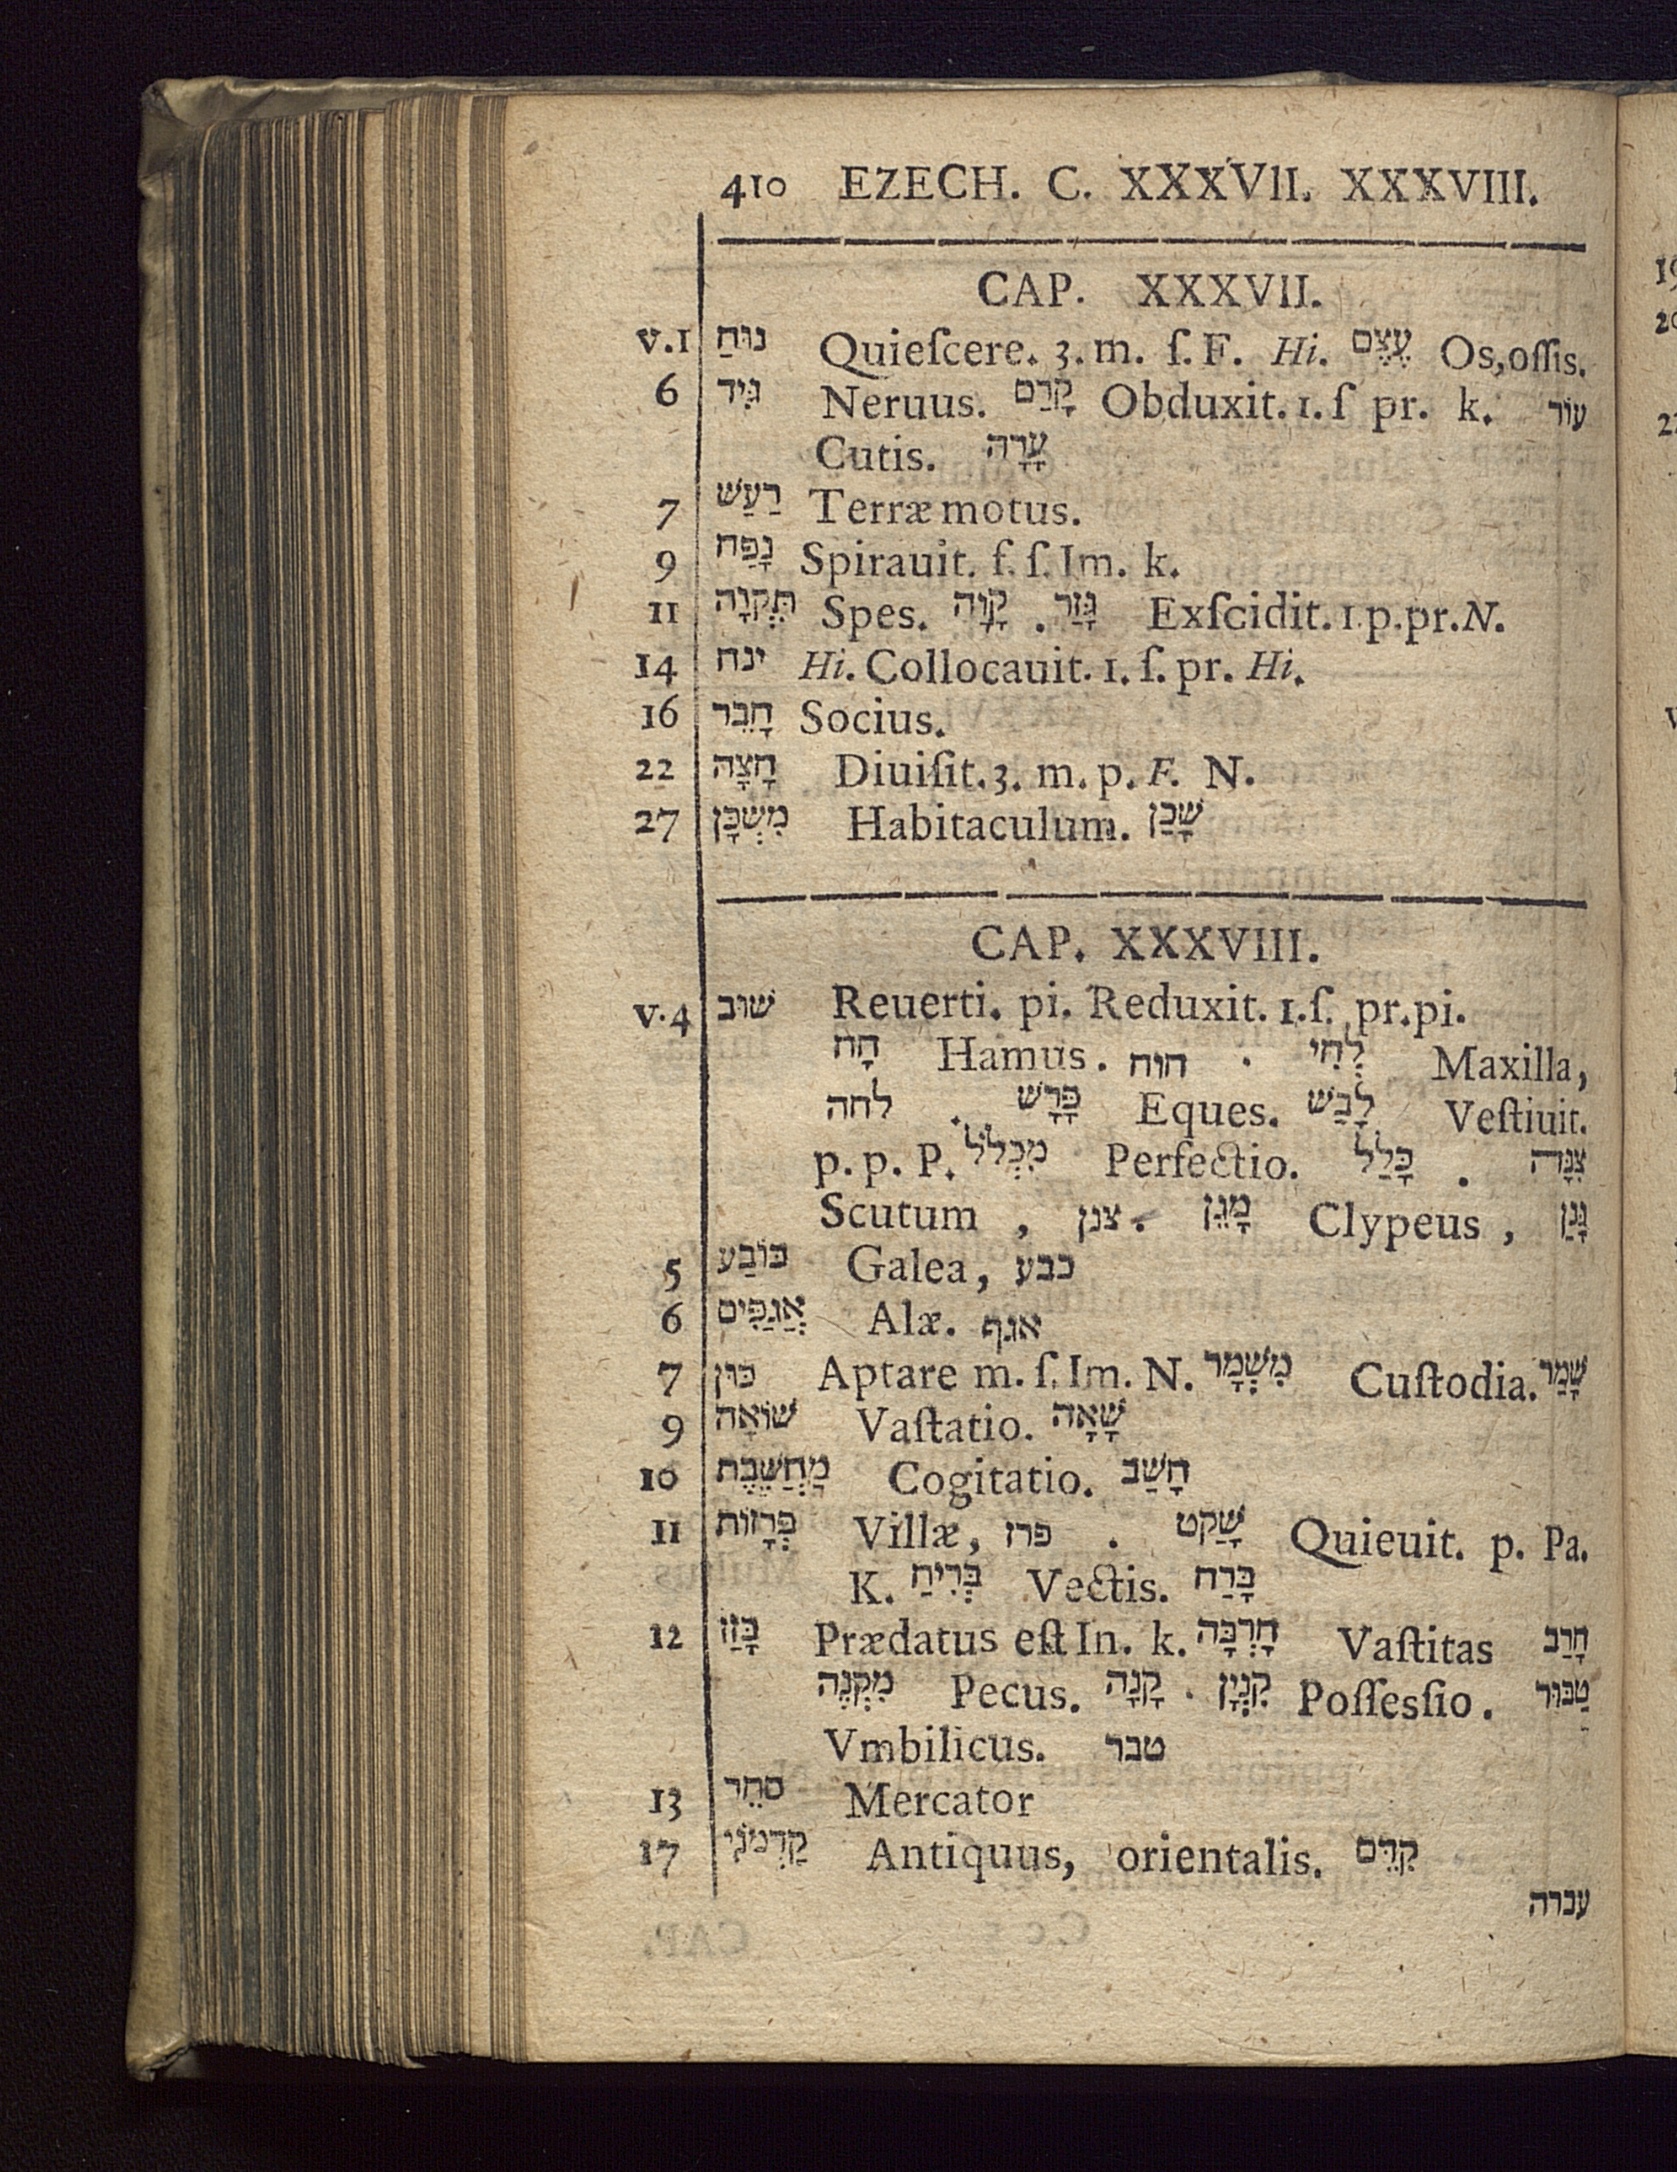 410 EZECH. C. XXXVII. XXXVIII.
CAP. XXXVII.
v.1 נוּחַ Quieſcere. 3. m. ſ. F. Hi. עֶצֶם Os,oſſis.
6 גִּיד Neruus. קָרַם Obduxit. 1. ſ pr. k. עוֹר
Cutis. עָרָה
7 רַעַשׁ Terræmotus.
9 נָפַּח Spirauit. f. ſ. Im. k.
11 תִּקְוָה Spes. קָוָה . גָּזַר Exſcidit. 1.p.pr.N.
14 ינח Hi. Collocauit. 1. ſ. pr. Hi.
16 חָבֵר Socius.
22 חָצָה Diuiſit. 3. m. p. F. N.
27 מִשְׁכָּן Habitaculum. שָׁכַן
CAP. XXXVIII.
v.4 שׁוּב Reuerti. pi. Reduxit. 1.ſ. pr.pi.
חָח Hamus. חוח . לְחִי Maxilla,
לחה . פָּרָשׁ Eques. לָבַשׁ Veſtiuit.
p. p. P. מִכְלֹל Perfectio. כָּלַל . צִנָּה
Scutum , צנן . מָגֵן Clypeus , גָּנַן
5 כּוֹבַע Galea, כבע
6 אֲגַפִּים Alæ. אגף
7 כּוּן Aptare m. ſ. Im. N. מִשְׁמָר Cuſtodia. שָׁמַר
9 שׁוֹאָה Vaſtatio. שָׁאָה
10 מַחֲשֶׁבֶת Cogitatio. חָשַׁב
11 פְּרָזוֹת Villæ, פרז . שָׁקַט Quieuit. p. Pa.
K. בְּרִיחַ Vectis. בָּרַח
12 בָּזַז Prædatus eſt In. k. חָרְבָּה Vaſtitas חָרַב
מִקְנֶה Pecus. קָנָה . קִנְיָן Poſſeſſio. טַבּוּר
Vmbilicus. טבר
13 סחֵר Mercator
17 קַדְמֹנִי Antiquus, orientalis. קֶדֶם
עברה